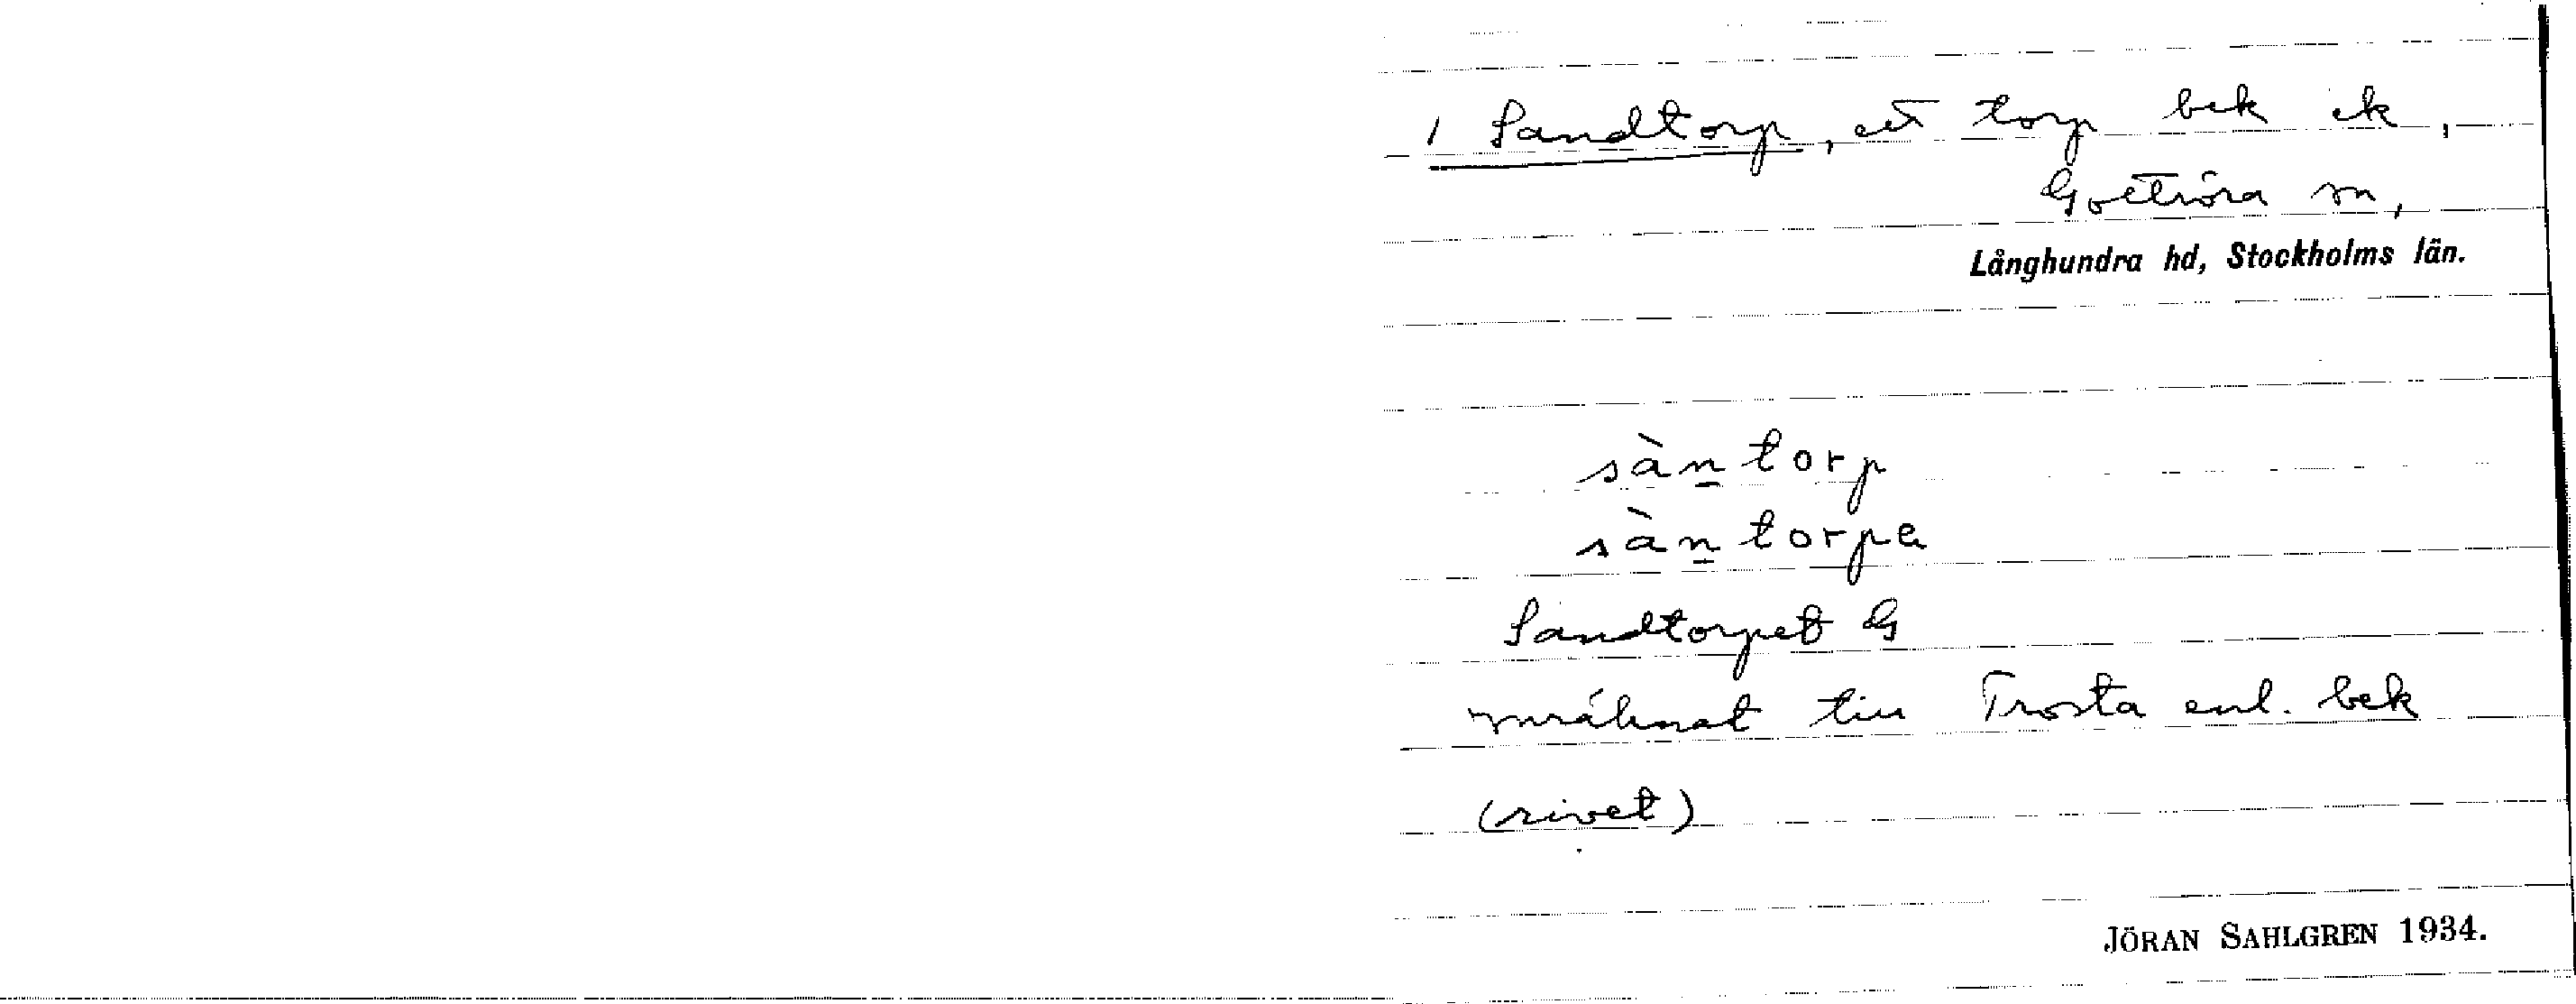 1 Sandtorp, ett torp bek ek,
Gottröra sn,
Långhundra hd, Stockholms län.
sàn torp
sàn torpe
Sandtorpet G
till Trosta enl. bek
(rivet)
JÖRAN SAHLGREN 1934.